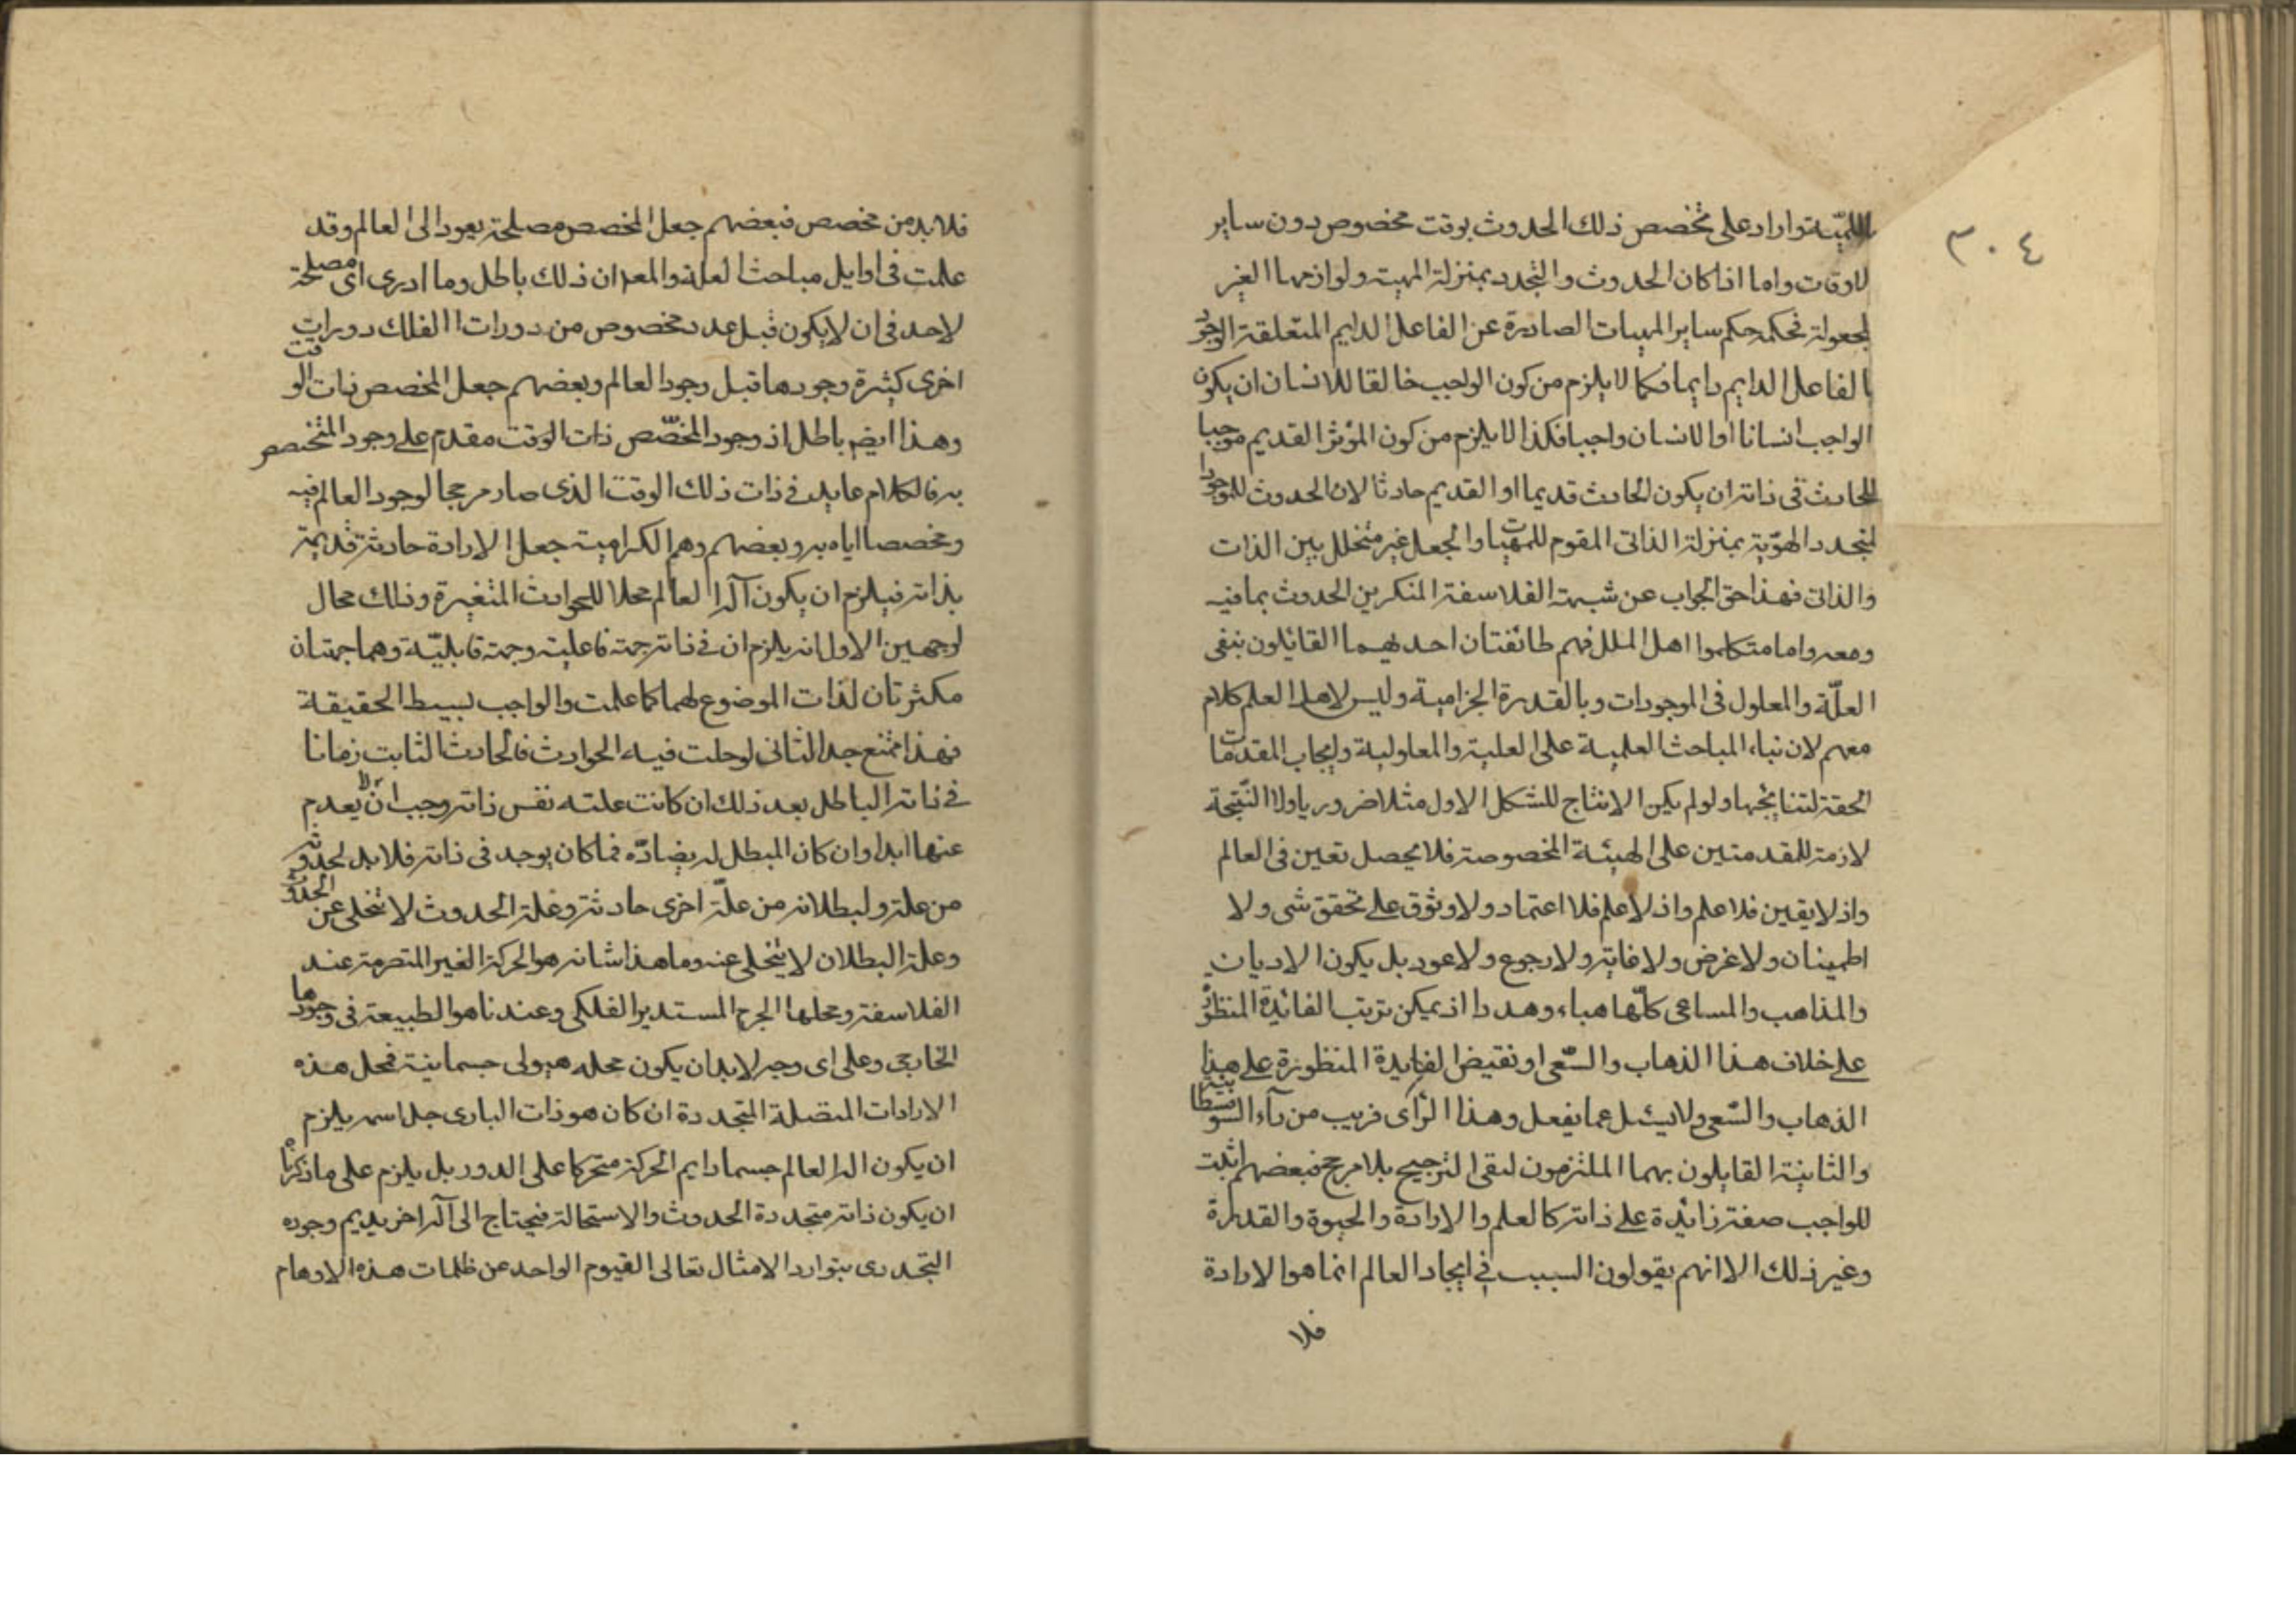 ٣٠٤
اللميّة وارادعلى تخصص ذلك الحدوث بوقت مخصوص دون ساير
لاوقات واما اذا كان الحدوث والتجدد بمنزلة المهية ولوازمها الغير
لمجعولة فحكمه حكم ساير المهيات الصادرة عن الفاعل الدايم المتعلقة الوجود
بالفاعل الدايم دايما فكما لا يلزم من كون الواجب خالقا للانسان ان يكون
الواجب انسانا او الانسان واجبا فكذا لا يلزم من كون المؤثر القديم موجبا
للحادث في ذاته ان يكون الحادث قديما او القديم حادثا لان الحدوث للوجود
لمتجدد الهوّية بمنزلة الذاتى المقوم للمهيات والجعل غير متخلل بين الذات
والذاتى فهذا حق الجواب عن شبهة الفلاسفة المنكرين الحدوث بما فيه
ومعه واما متكلموا اهل الملل فهم طائفتان احديهما القائلون بنفى
العلّة والمعلول فى الموجودات وبالقدرة الجزافية وليس لاهل العلم كلام
معهم لان بناء المباحث العلمية على العلية والمعلولية وايجاب المقدمات
الحقة لنتايجها ولو لم يكن الانتاج للشكل الاول مثلا ضروريا ولا النتيجة
لازمة للمقدمتين على الهيئة المخصوصة فلا يحصل تعين فى العالم
واذ لا يقين فلا علم واذ لا علم فلا اعتماد ولا وثوق على تحقق شى ولا
اطمينان ولا غرض ولا غاية ولا رجوع ولا عود بل يكون الاديان
والمذاهب والمساعى كلّها هباء وهدرا اذ يمكن ترتب الفائدة المنظورة
على خلاف هذا الذهاب والسّعى او نقيض الفايدة المنظورة على هذا
الذهاب والسّعى ولا يسئل عما يفعل وهذا الرّأى قريب من رآء السوفسطائية
والثانية القايلون بهما الملتزمون لنفى الترجيح بلا مرجح فبعضهم اثبت
للواجب صفة زائدة على ذاته كالعلم والارادة والحيوة والقدرة
وغير ذلك الا انهم يقولون السبب في ايجاد العالم انما هو الارادة
فلا
فلا بد من مخصص فبعضهم جعل المخصص مصلحة يعود الى العالم وقد
علمت فى اوايل مباحث العلة والمعر ان ذلك باطل وما ادرى اى مصلحة
لاحد فى ان لا يكون قبل عدد مخصوص من دورات الفلك دورات
اخرى كثيرة وجودها قبل وجود العالم وبعضهم جعل المخصص ذات الوقت
وهذا ايضم باطل اذ وجود المخصّص ذات الوقت مقدم على وجود المتخصص
به فالكلام عايد فى ذات ذلك الوقت الذى صار مرجحا لوجود العالم فيه
ومخصصا اياه به وبعضهم وهم الكرامية جعل الارادة حادثة قديمة
بذاته فيلزم ان يكون آله العالم محلا للحوادث المتغيرة وذلك محال
لوجهين الاول انه يلزم ان فى ذاته جهة فاعلية وجهة قابليّة وهما جهتان
مكثرتان لذات الموضوع لهما كما علمت والواجب بسيط الحقيقة
فهذا ممتنع جدا الثانى لوحلت فيه الحوادث فالحادث الثابت زمانا
فى ذاته الباطل بعد ذلك ان كانت علته نفس ذاته وجب ان لا يعدم
عنها ابدا وان كان المبطل له يضادّه فما كان يوجد فى ذاته فلا بد لحدوثه
من علة ولبطلانه من علّة اخرى حادثة وعلة الحدوث لا تتخلى عن الحدوث
وعلة البطلان لا يتخلى عنه وما هذا شانه هو الحركة الغير المتصرمة عند
الفلاسفة ومحلها الجرم المستدير الفلكى وعندنا هو الطبيعة فى وجودها
الخارجى وعلى اى وجه لا بد ان يكون محله هيولى جسمانية فمحل هذه
الارادات المتصلة المتجددة ان كان هو ذات البارى جل اسمه يلزم
ان يكون اله العالم جسما دايم الحركة متحركا على الدور بل يلزم على ما ذكرناه
ان يكون ذاته متجددة الحدوث والاستحالة فيحتاج الى آله اخر يديم وجوده
التجددى بتوارد الامثال تعالى القيوم الواحد عن ظلمات هذه الاوهام